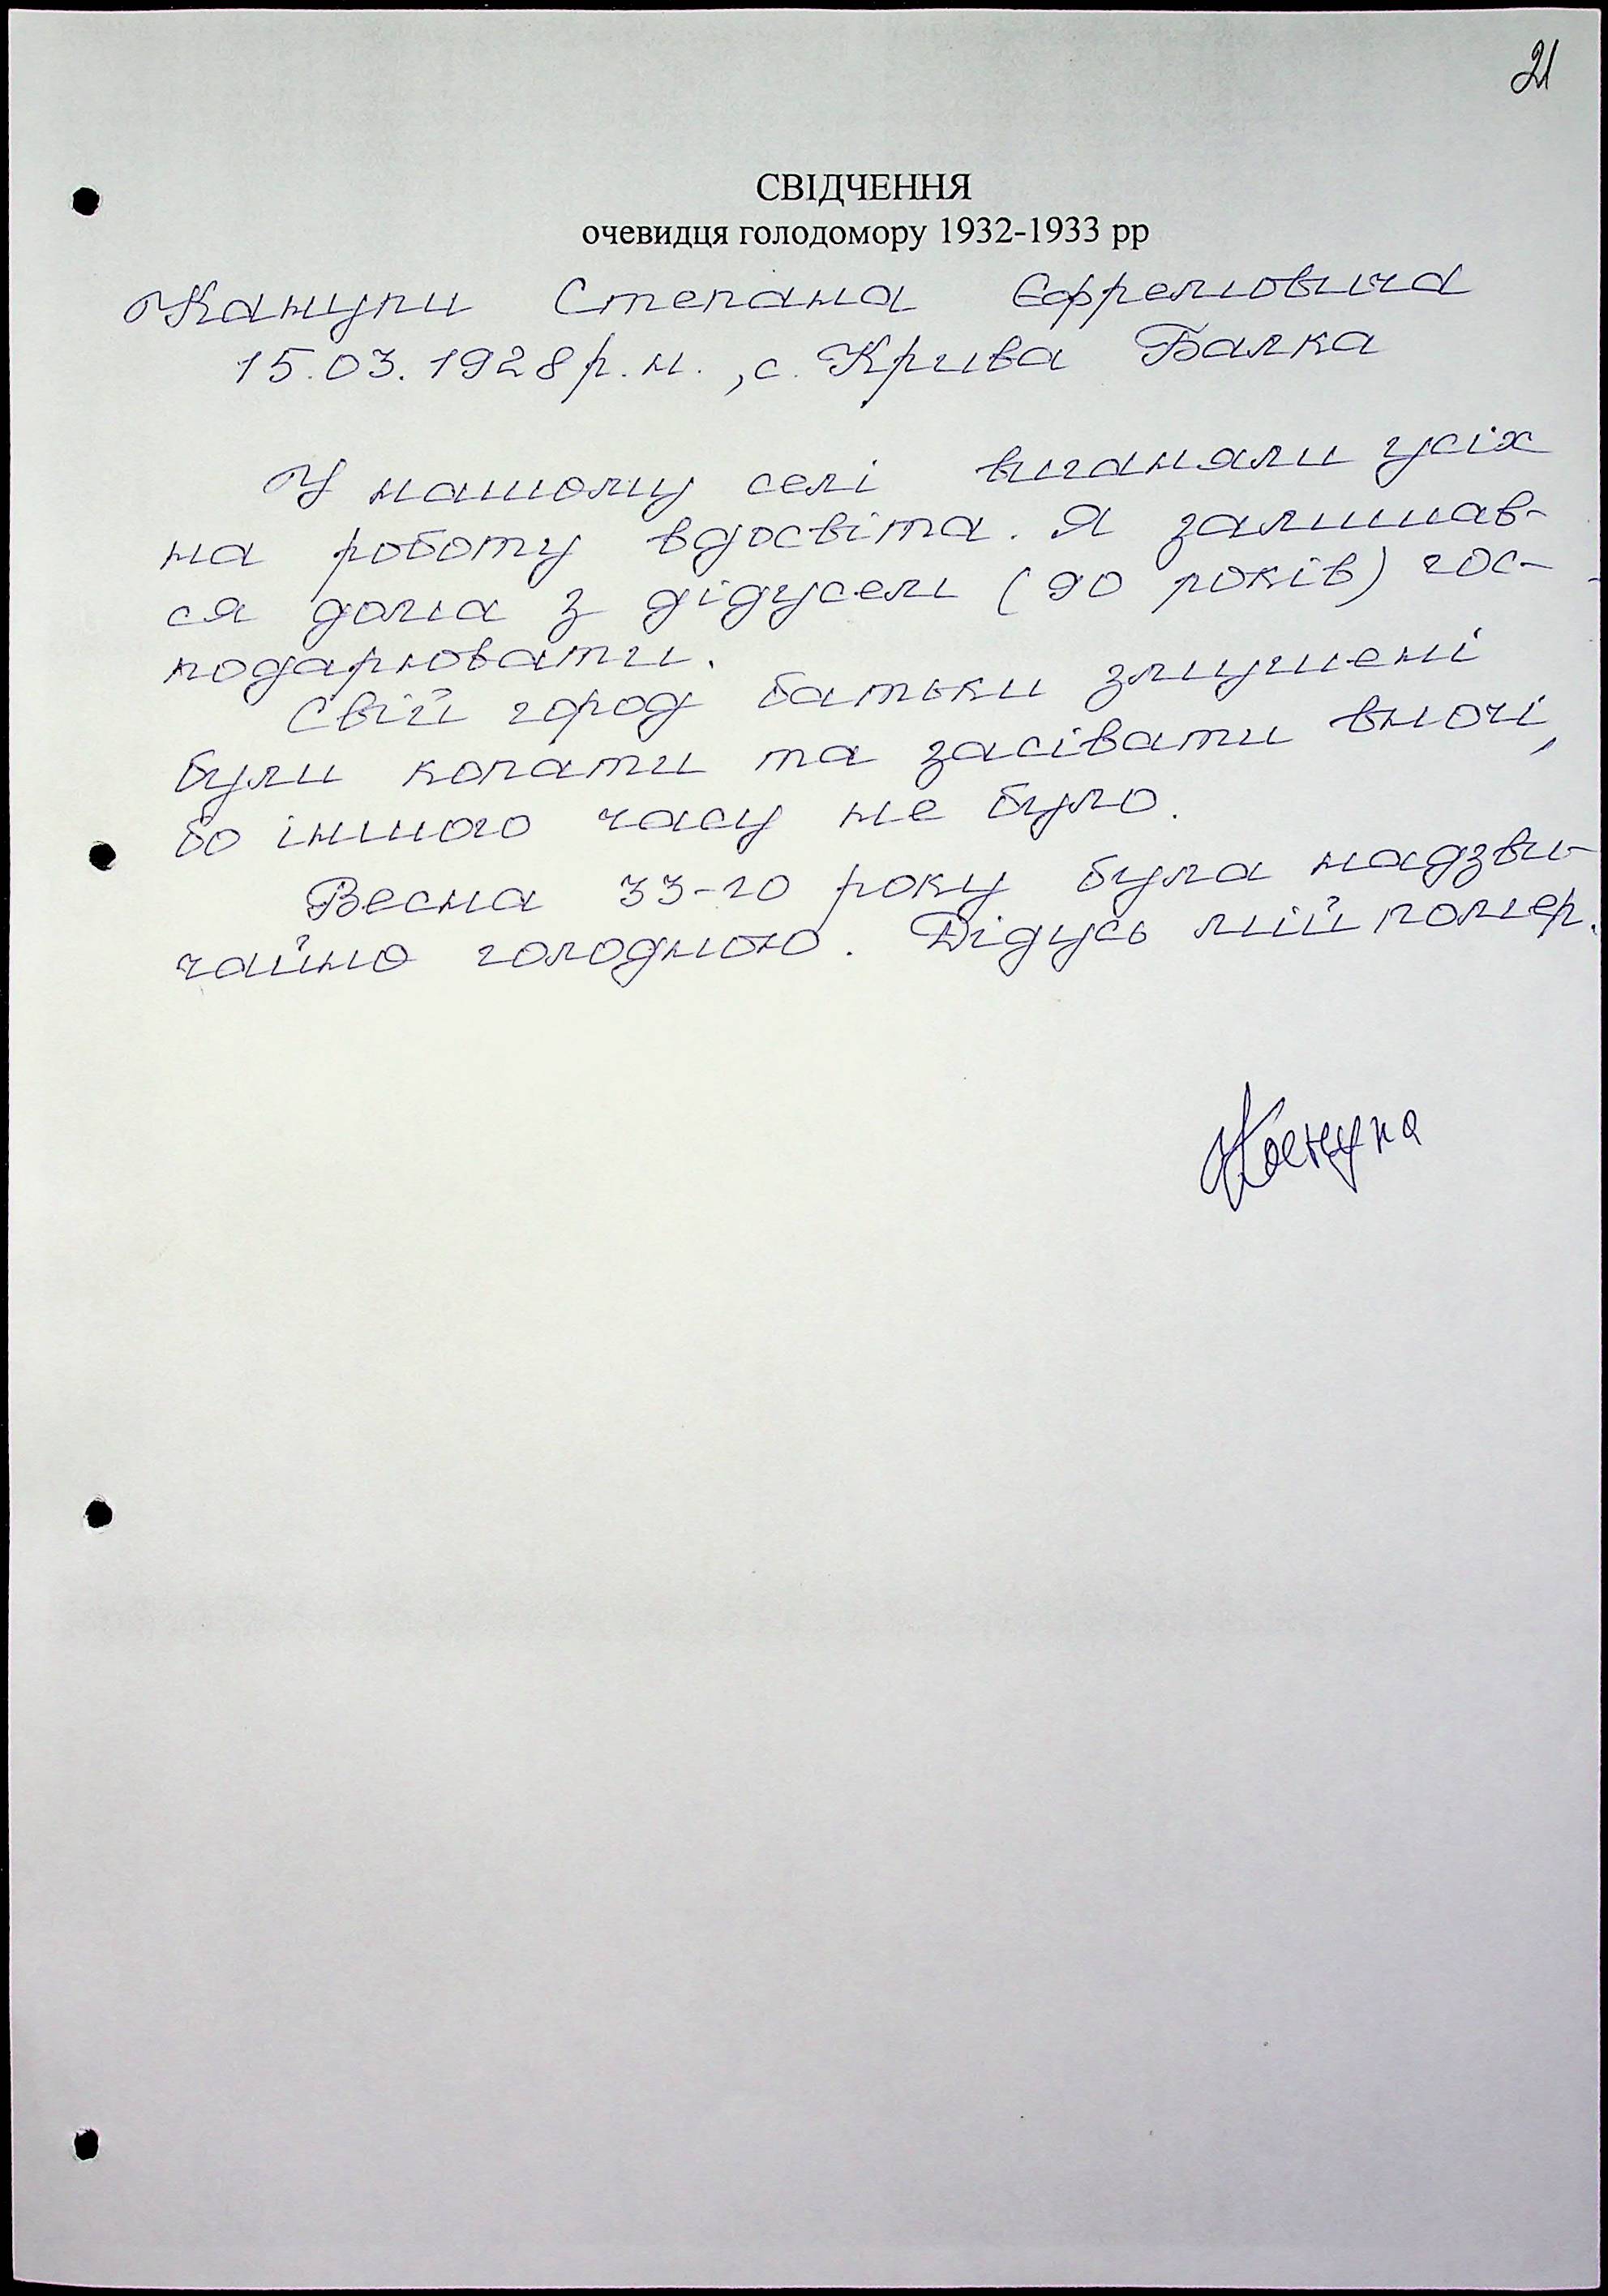 21
СВІДЧЕННЯ
очевидця голодомору 1932-1933 рр
Канупи Степана Єфремовича
15.03.1928 р.н., с. Крива Балка
У нашому селі виганяли усіх
на роботу вдосвіта. Я залишав-
ся дома з дідусем (90 років) гос-
подарювати.
Свій город батьки змушені
були копати та засівати вночі,
бо іншого часу не було.
Весна 33-го року була надзви-
чайно голодною. Дідусь мій помер.
Канупа